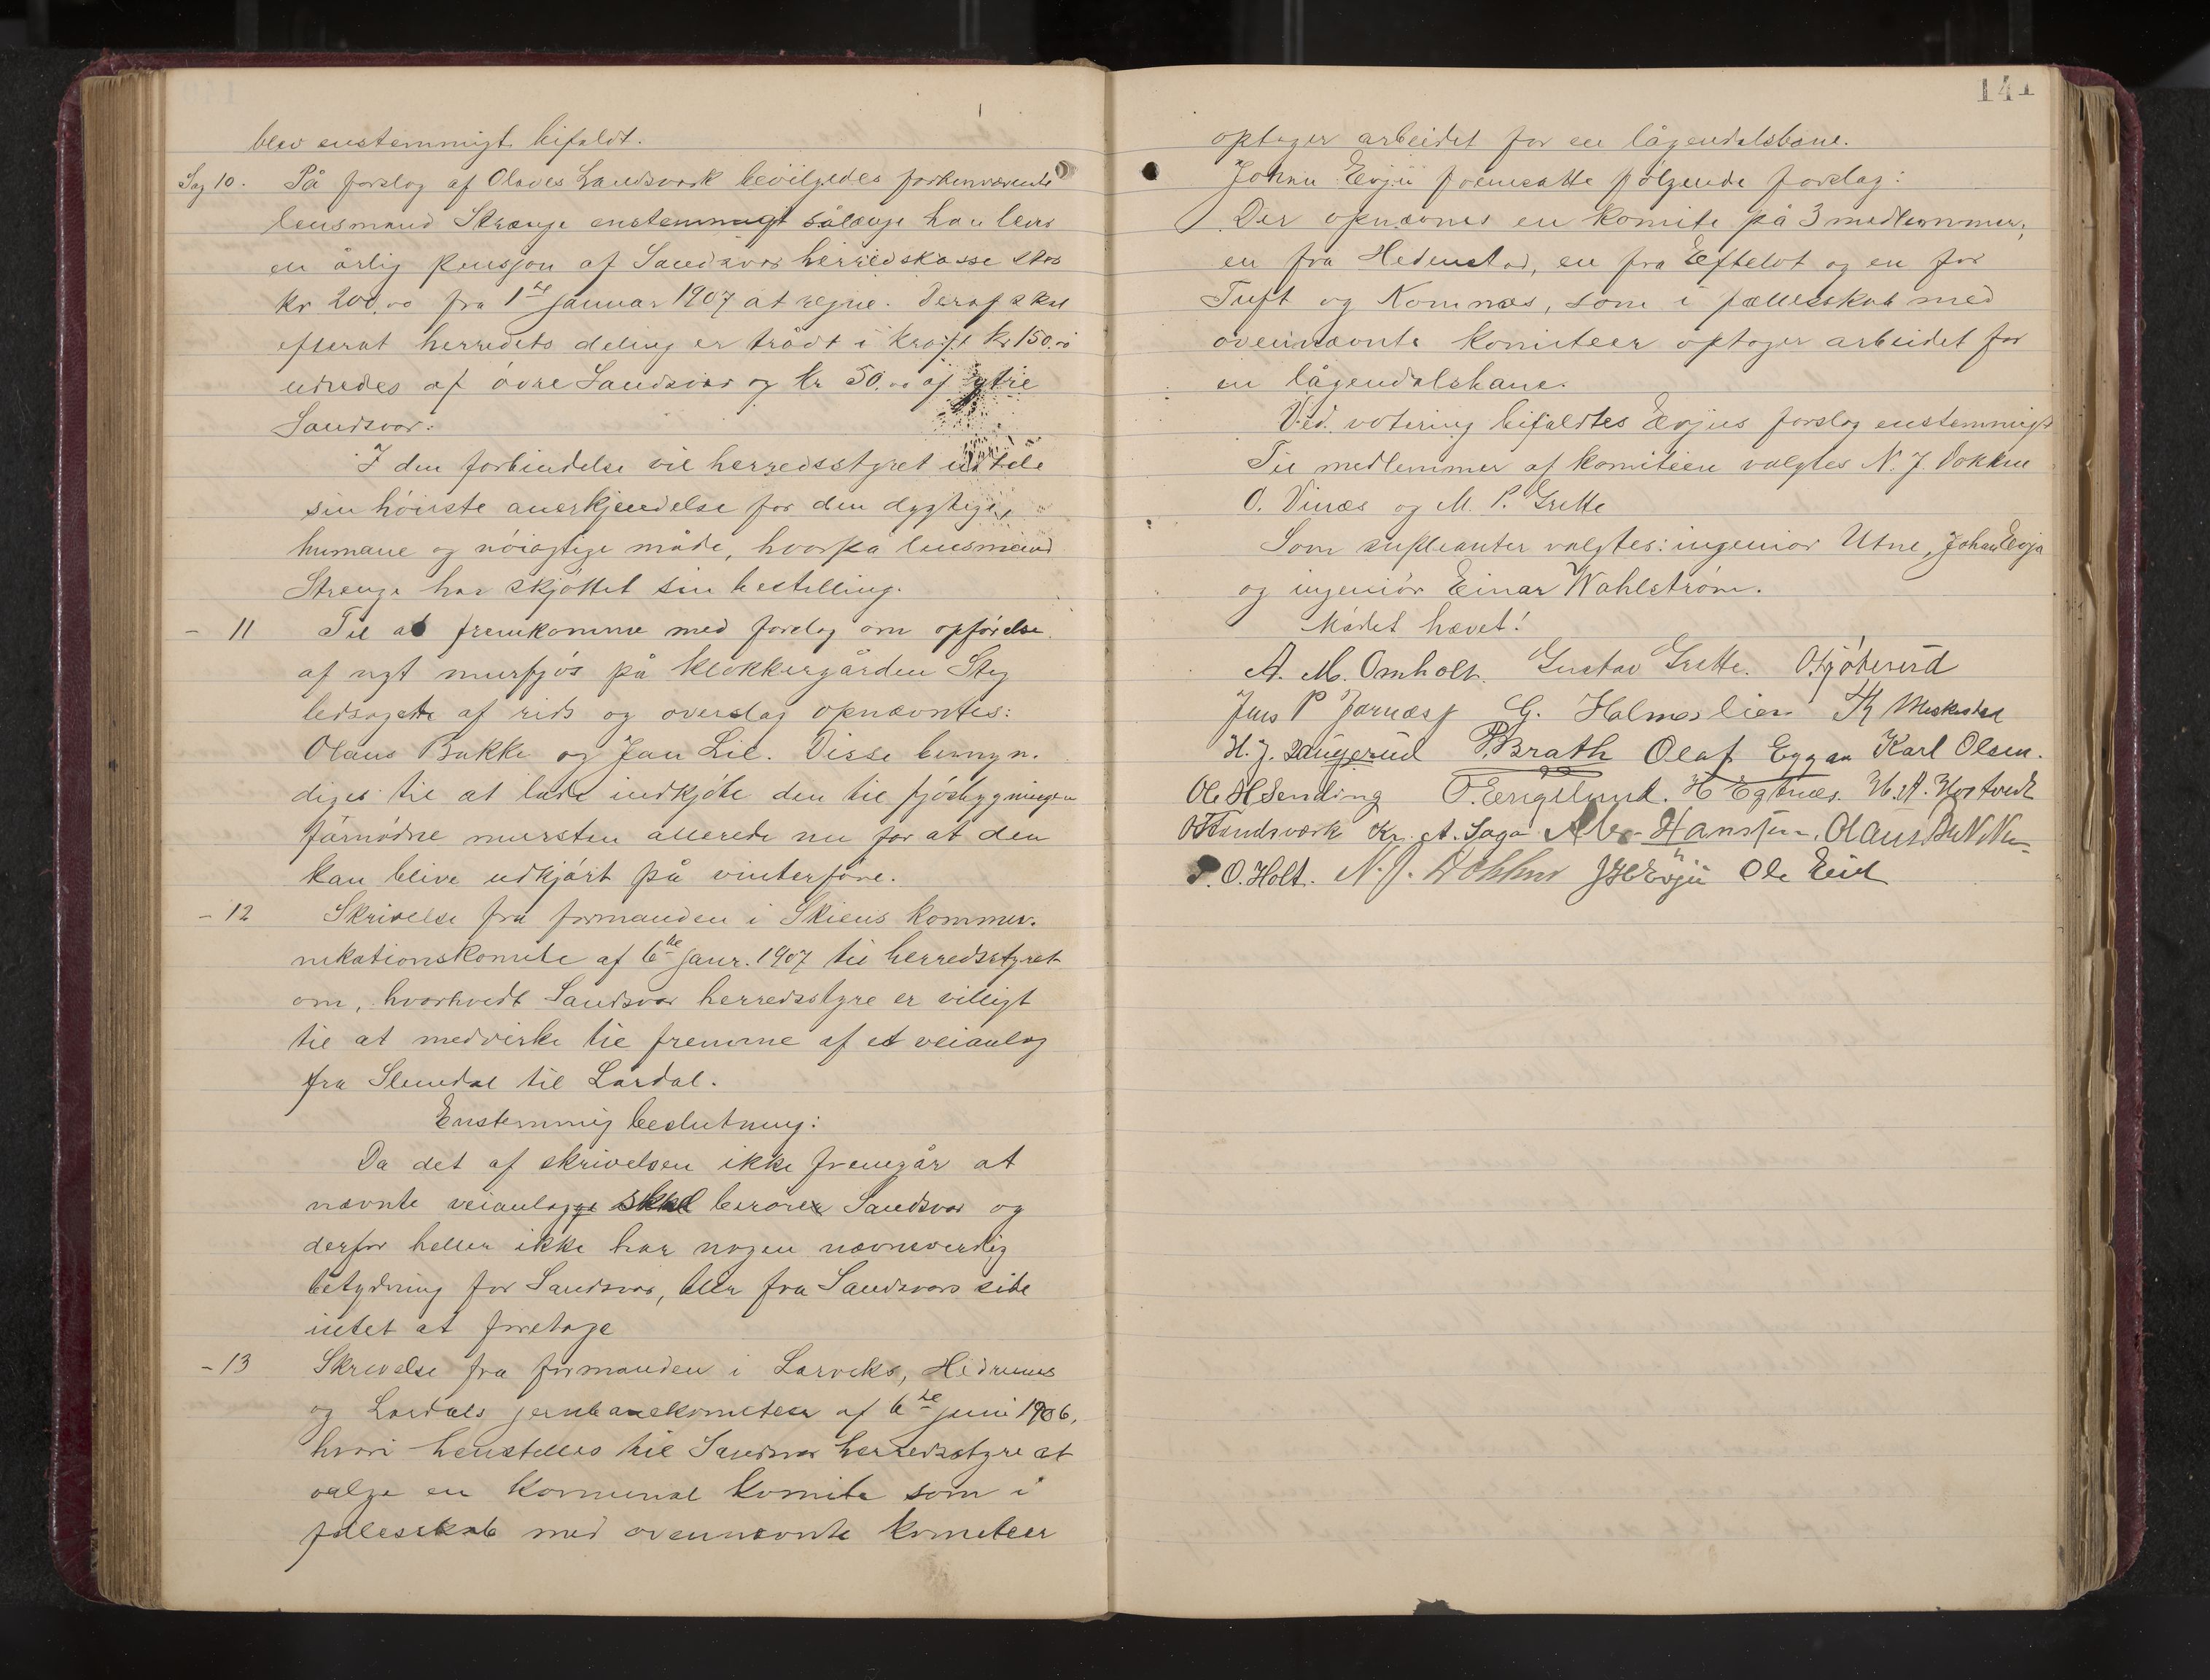 blev enstemmigt bifaldt.
Sag 10. På forslag af Olaves Landsverk bevilgedes forhenværende
lensmand Strænge enstemmigt sålænge han lever
en årlig pensjon af Sandsvær herredskasse stor
kr 200.00 fra 1ste januar 1907 at regne. Deraf skal
efterat herredets deling er trådt i kraft kr 150.00
udredes af øvre Sandsvær og kr 50.00 af ytre
Sandsvær.
I den forbindelse vil herredsstyret udtale
sin høieste anerkjendelse for den dygtige,
humane og nøiagtige måde, hvorpå lensmand
Strenge har skjøttet sin bestilling.
- 11 Til at fremkomme med forslag om opførelse
af nyt murfjøs på klokkergården Sky
ledsaget af rids og overslag opnævntes:
Olaus Bakke og Jan Lie. Disse bemyn-
diges til at lade indkjøbe den til fjøsbygningen
fornødne mursten allerede nu for at den
kan blive udkjørt på vinterføre.
- 12 Skrivelse fra formanden i Skiens kommu-
nikationskomite af 6te janr. 1907 til herredsstyret
om, hvorhvidt Sandsvær herredsstyre er villigt
til at medvirke til fremme af et veianlæg
fra Slemdal til Lardal.
Enstemmig beslutning:
Da det af skrivelsen ikke fremgår at
nævnte veianlæg skal berøre Sandsvær og
derfor heller ikke har nogen nævneverdig
betydning for Sandsvær, blir fra Sandsværs side
intet at foretage
- 13 Skrivelse fra formanden i Larviks, Hedrums
og Lardals jernbanekomiteer af 6te juni 1906,
hvori henstilles til Sandsvær herredsstyre at
vælge en kommunal komite som i
fællesskab med ovennævnte komiteer
141
optager arbeidet for en lågendalsbane.
Johan Evju fremsatte følgende forslag:
Der opnævnes en komite på 3 medlemmer,
en fra Hedenstad, en fra Efteløt og en for
Tuft og Komnæs, som i fællesskab med
ovennævnte komiteer optager arbeidet for
en lågendalsbane.
Ved votering bifaldtes Evjus forslag enstemmigt
Til medlemmer af komiteen valgtes N. J. Dokken
O. Vinæs og M. P. Grette
Som supleanter valgtes: ingeniør Utne, Johan Evju
og ingeniør Einar Wahlstrøm.
Mødet hævet!
A. M. Omholt. Gustav Grette. O. Gjøterud
Jens P Jarnæs G. Holmslien Th
H. J. P. Brath Olaf Eggar Karl Olsen.
Ole H Sending O. Englund. H Egtnæs. H. A. Hostvedt
Landsverk Kr. A. Saga Hansen. Olaus
P. O. Holt. N. J. Dokken J H Evju Ole Eid